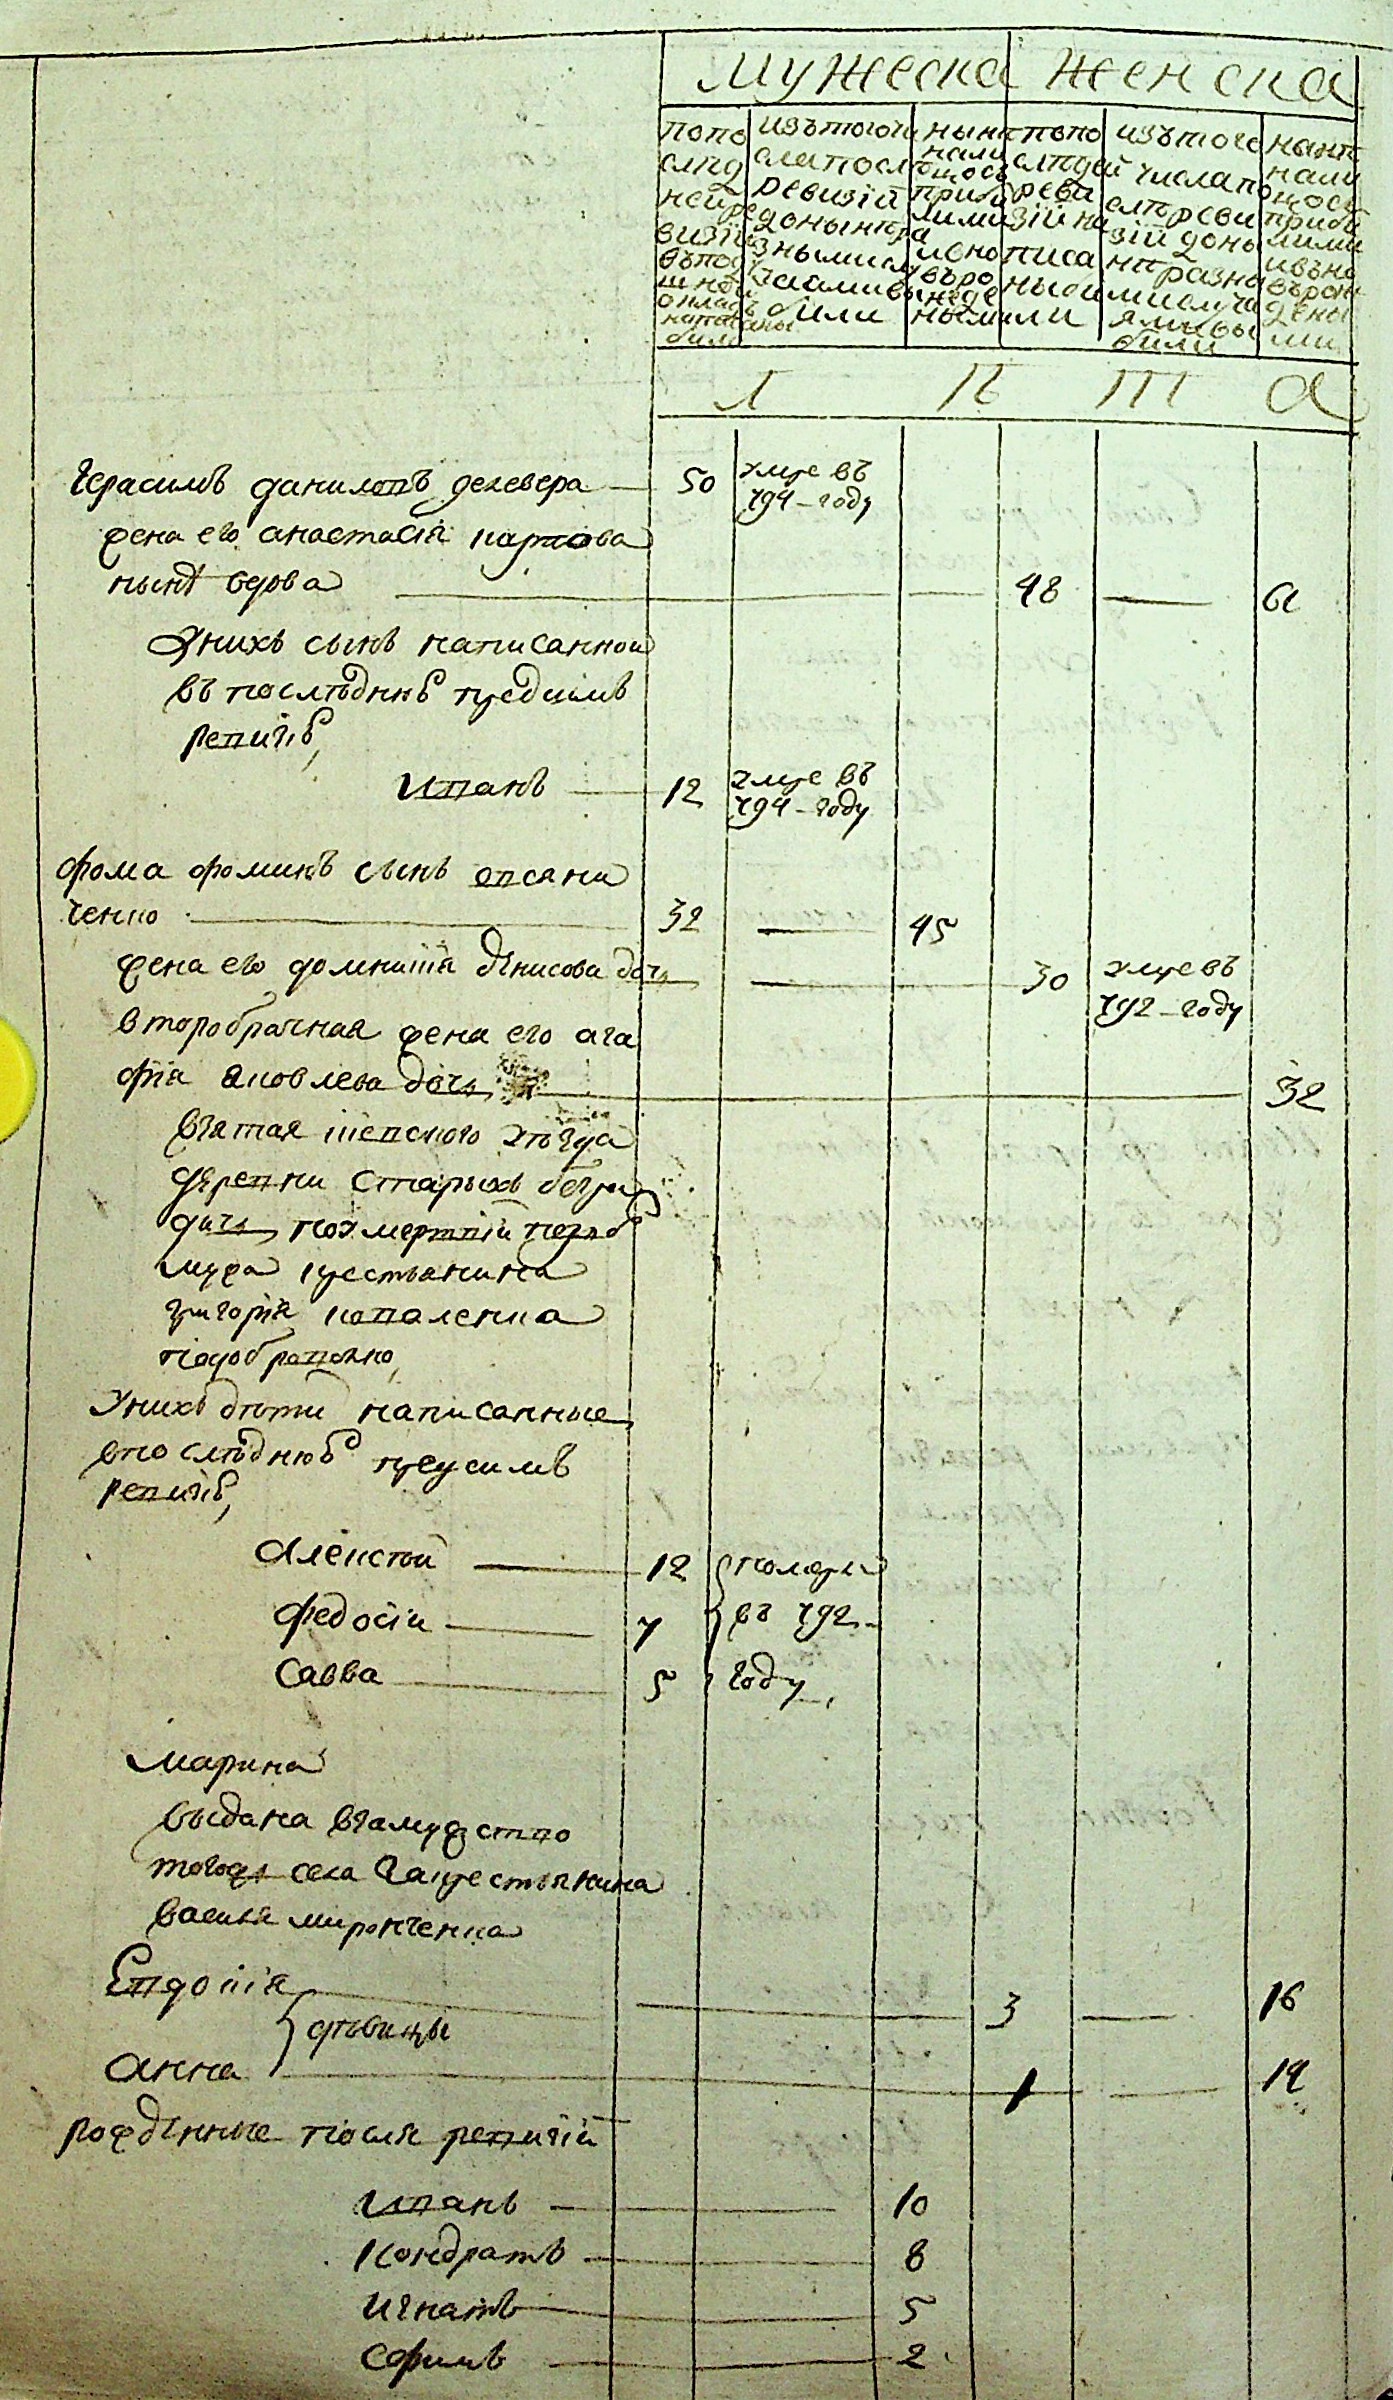 мужеска женска
попо
слѣд
ней ре
визіи
въпод
шной
окладъ
написаны
были
изътогочи
слапосл
ревизіи
доныне ра
зными слу
чаями вы
были
нынѣ
нали
цосъ
прибы
лими
ивно
въро
жде
ными
попо
слѣдей
реви
зіи на
писа
ны бы
ли
изътого
числапо
слѣ реви
зіи доны
нѣ разны
ми случа
ями вы
были
нынѣ
нали
цосъ
прибы
лими
ивъно
върож
дены
ми
Л ѣ т а
Герасимъ даниловъ дехевера 50 умре въ
794-году
жена его анастасіа карпова
нынѣ вдова 48 61
Унихъ сынъ написанной
въ послѣднюю предсимъ
ревизію,
Иванъ 12 умре въ
794-году
фома фоминъ сынъ овсяни
ченко 32 45
жена его домникіа денисова дочь 30 умре въ
792-году
второбрачная жена его ага
фіа яковлева дочь 32
взятая кіевского уезда
деревни Старыхъ безра
дичь поумертвіи первого
мужа крестьянина
григоріа коваленка
Унихъ дѣти написанные
впослѣднюю предсимъ
ревизію,
Алексѣй 12 померли
Федосіи 7 въ 792-
Савва 5 году,
Марина
выдана взамужство
тогожъ села закрестьянина
василя миронченка
Евдокіа 3 16
дѣвицы
Анна 1 14
рожденные после ревизіи
Иванъ 10
Кондратъ 8
Игнатъ 5
Ефимъ 2